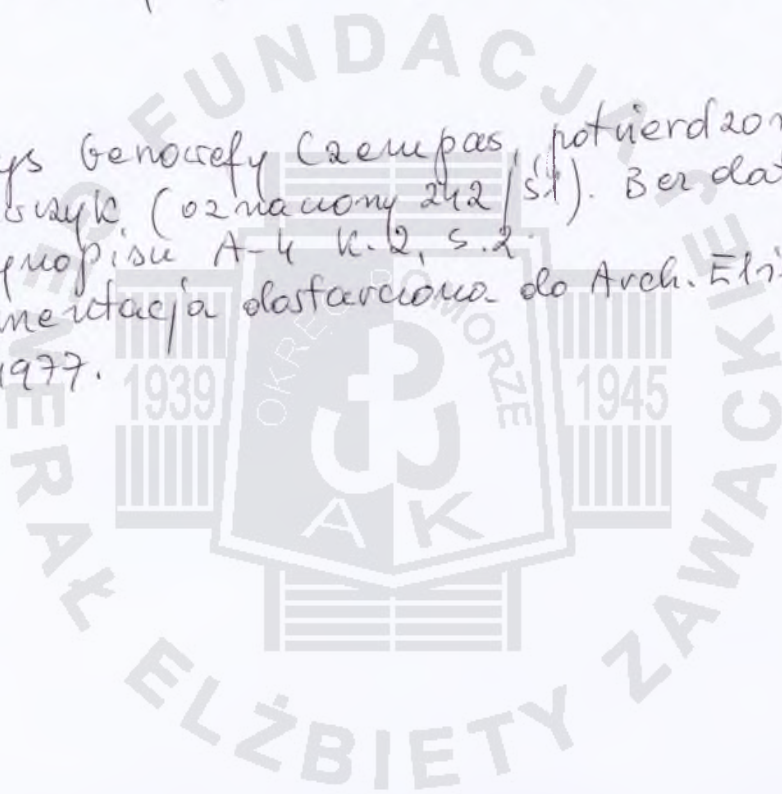 ys Genowefy Czempas, potwierdzon
szyk (oznaczony 242/Śl). Bez dat
ynopisu A-4 K.2, S.2.
mentacja dostarczona do Arch. Elż
1977.
FUNDACJA
GENERAŁ ELŻBIETY ZAWACKIEJ
OKRĘG POMORZE
1939
1945
AK